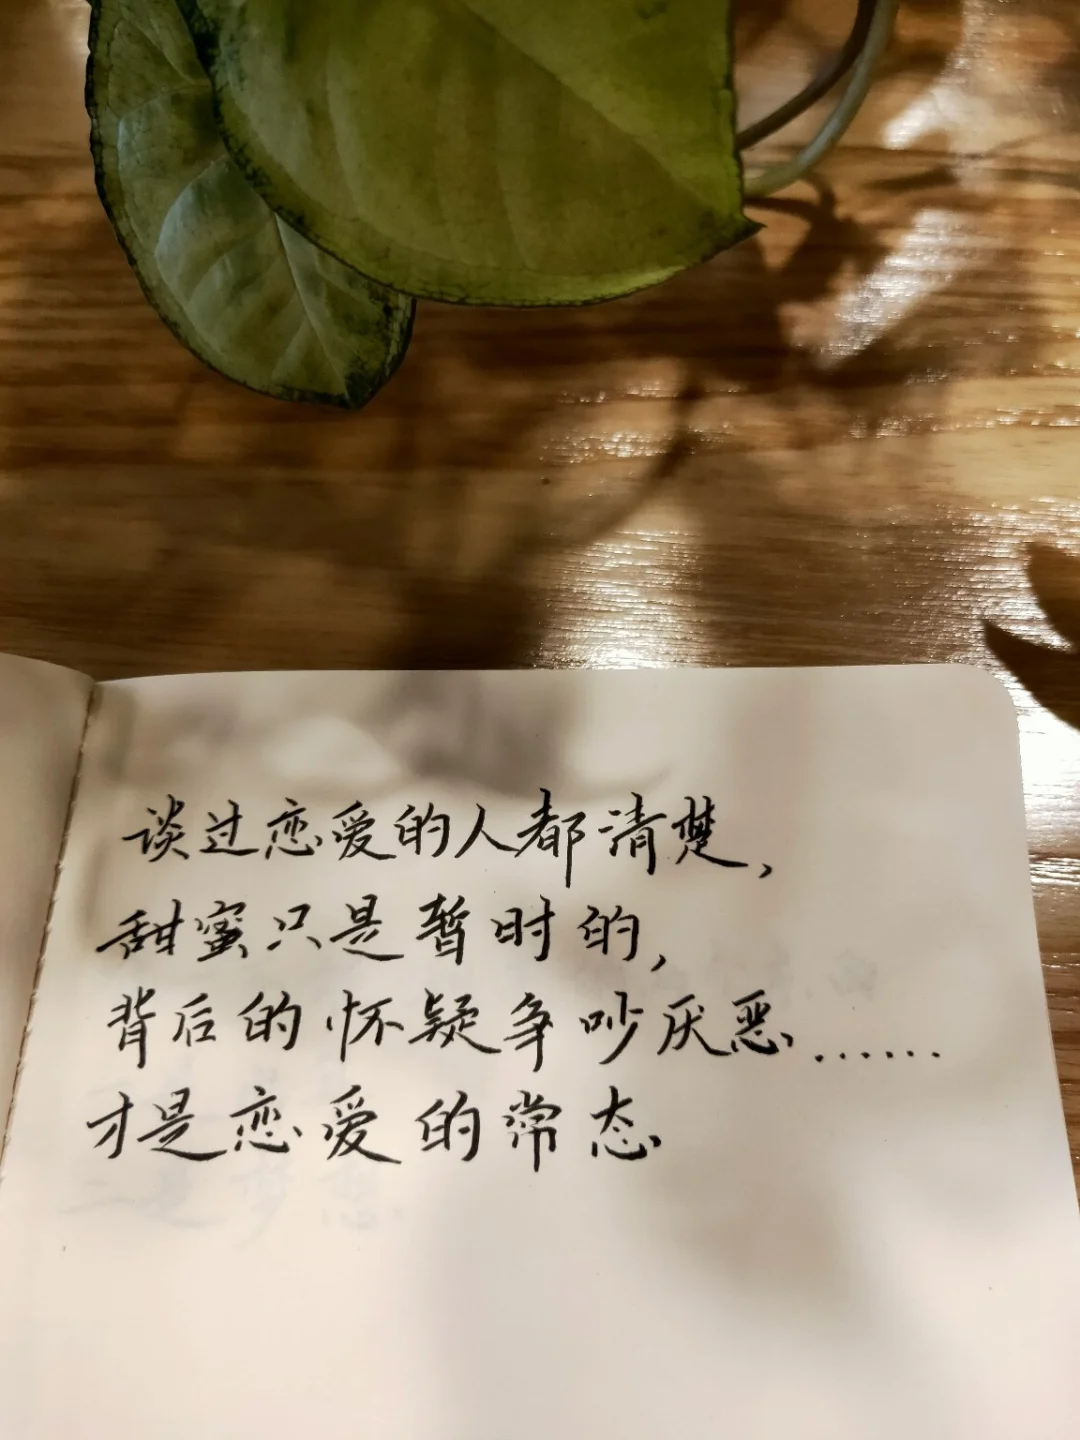 谈过恋爱的人都清楚，
甜蜜只是暂时的，
背后的怀疑争吵厌恶……
才是恋爱的常态